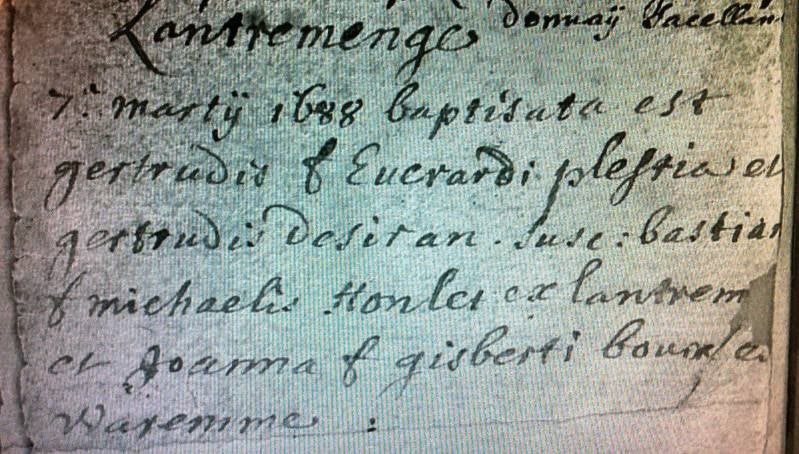 Lantremenge donnaÿ Sacellan
7.a martÿ 1688 baptisata est
gertrudis f Euerardi plestria et
gertrudis desiran. susc: bastian
f michaelis Honlet ex lantrem
et Joanna f gisberti
Waremme :